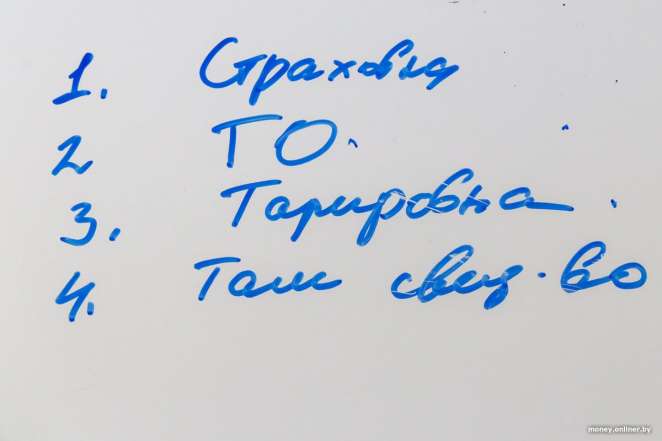 1. Страховка
2 ТО.
3. Тарировка.
4. Там свид-во
money.onliner.by